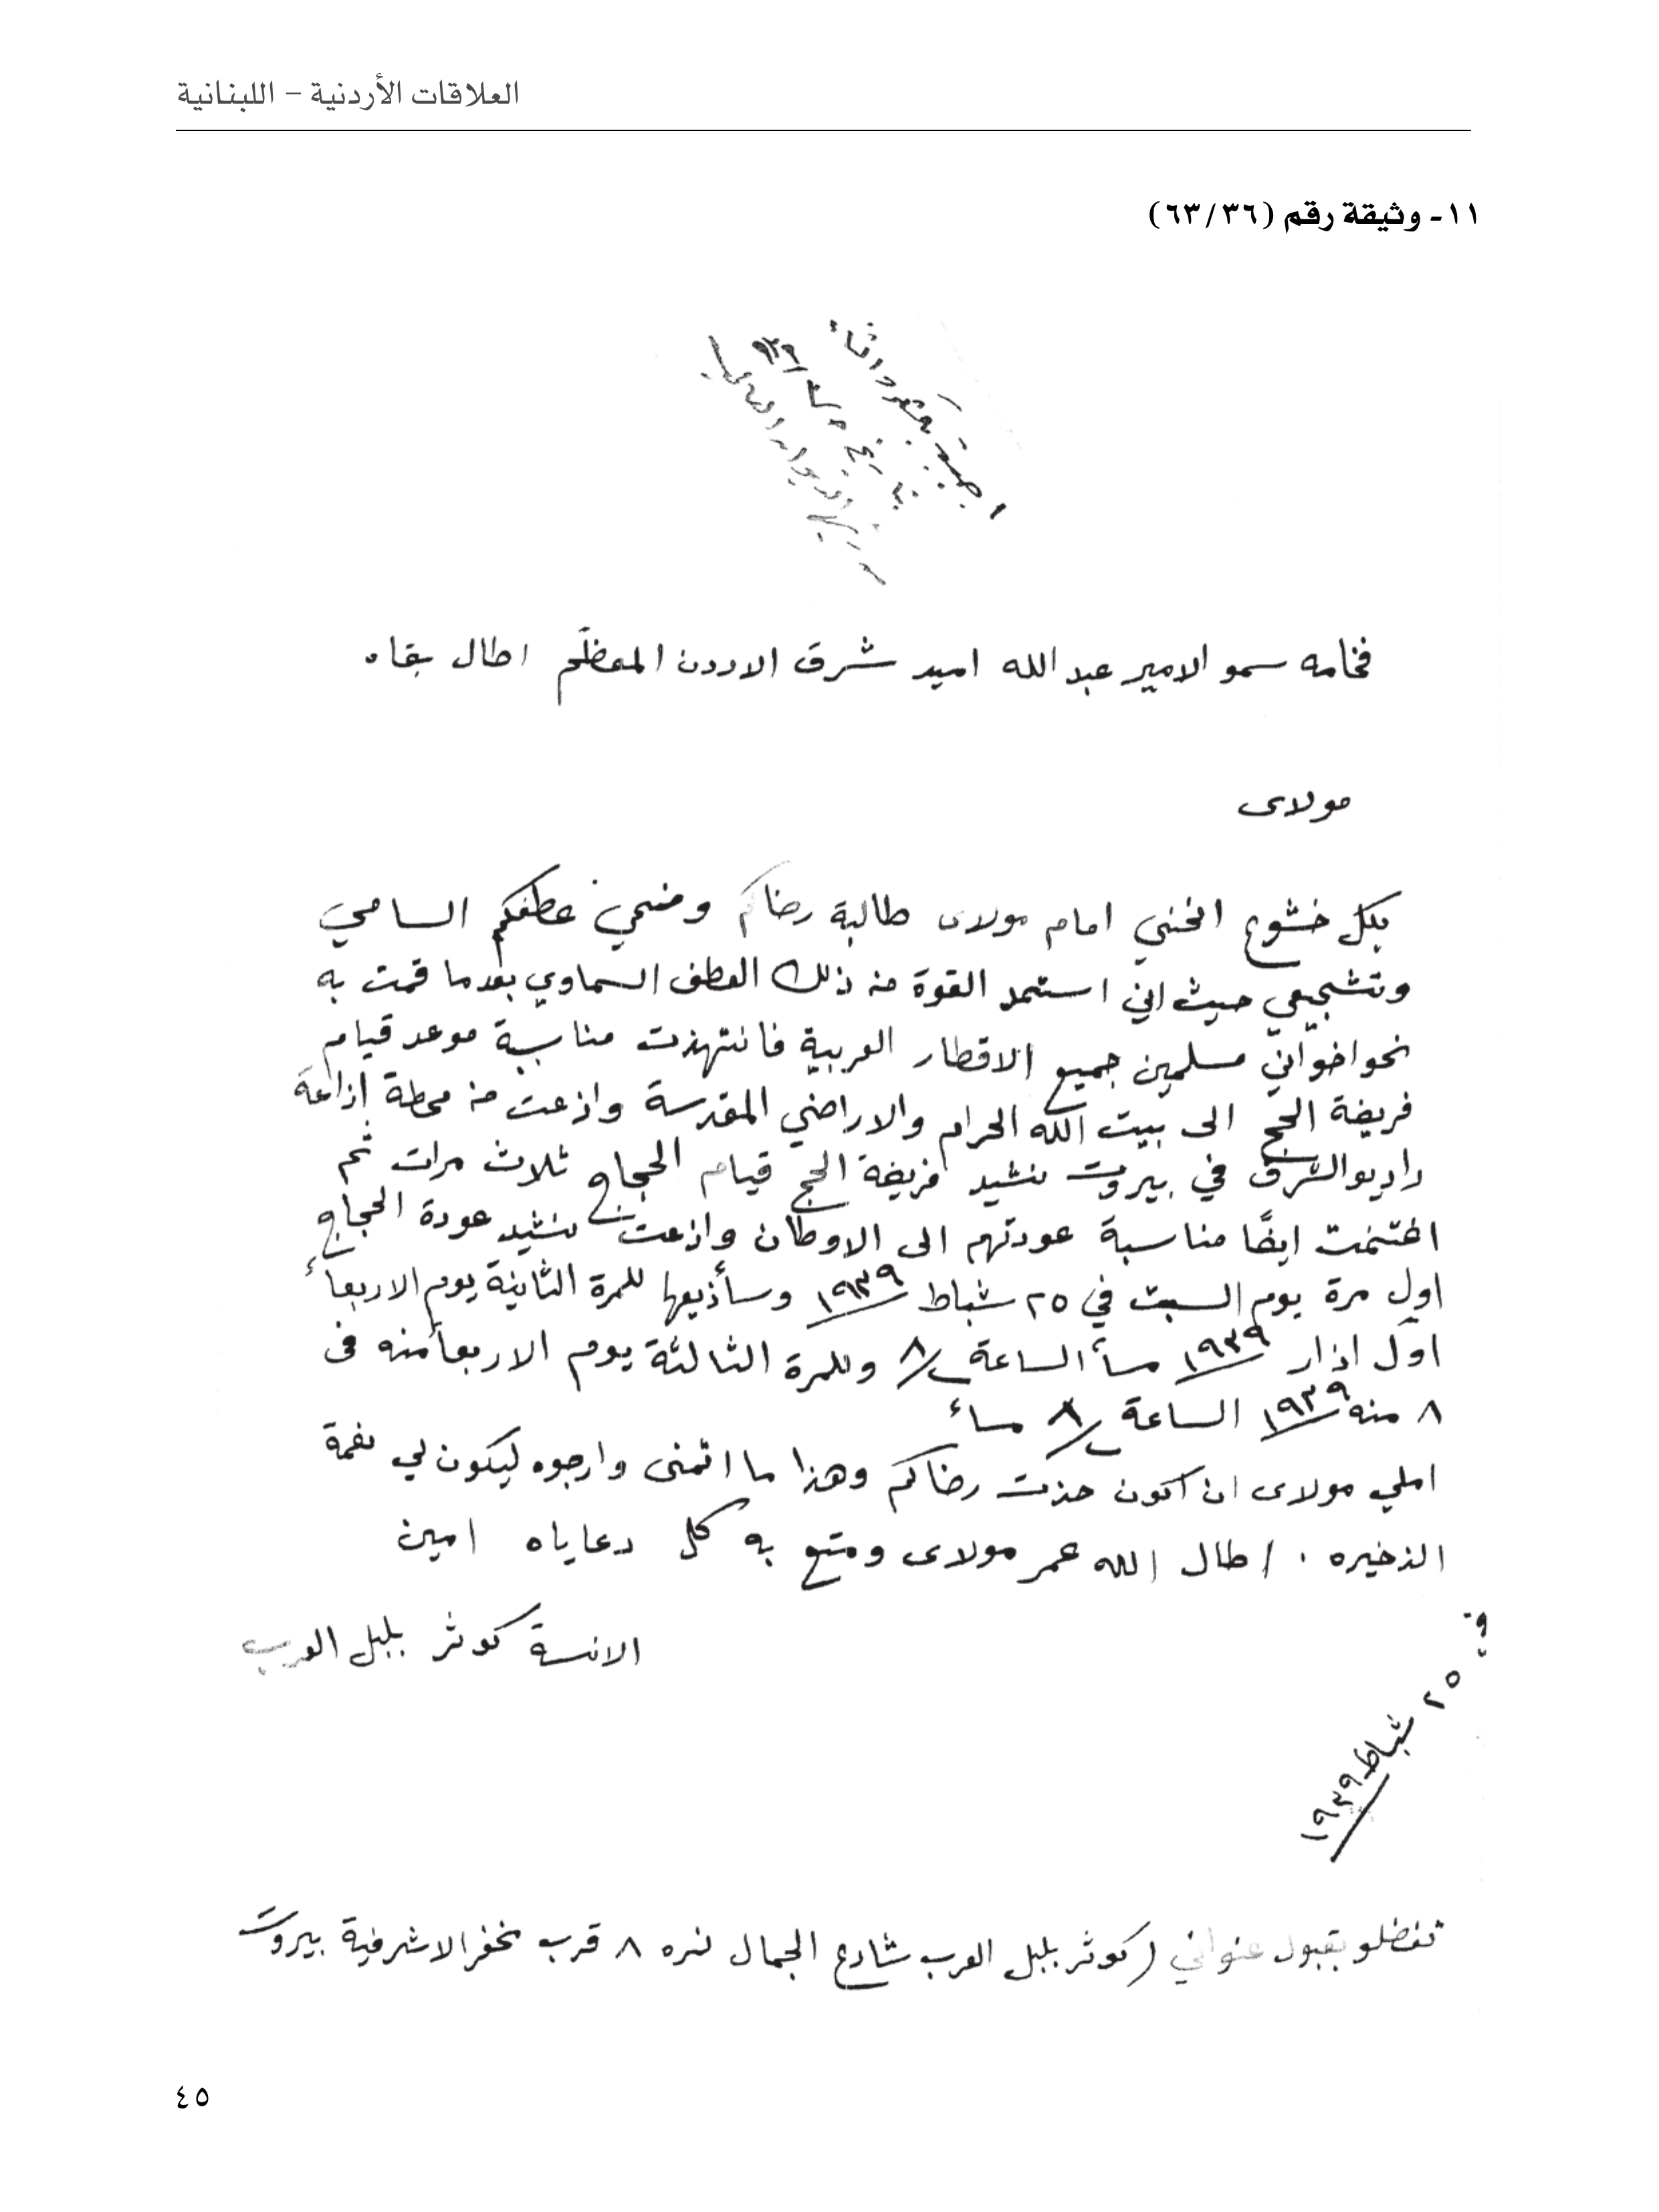 العلاقات الأردنية – اللبنانية
١١- وثيقة رقم (٦٣/٣٦)
اجيبت بتقدير وثناء
بتاريخ
رئيس الديوان العالي
فخامه سمو الامير عبد الله امير شرق الاردن المعظم اطال بقاه
مولاى
بكل خشوع انحني امام مولاى طالبة رضاكم ومنحي عطفكم السامي
وتشجيعي حيث اني استمد القوة من ذلك العطف السماوي بعدما قمت به
نحو اخواني مسلمين جميع الاقطار العربية فانتهذت مناسبة موعد قيام
فريضة الحج الى بيت الله الحرام والاراضي المقدسة واذعت من محطة إذاعة
راديو الشرق في بيروت نشيد فريضة الحج قيام الحجاج ثلاث مرات ثم
اغتنمت ايضًا مناسبة عودتهم الى الاوطان واذعت نشيد عودة الحجاج
اول مرة يوم السبت في ٢٥ شباط ١٩٣٩ وسأذيعها للمرة الثانية يوم الاربعاء
اول اذار ١٩٣٩ مسأ الساعة ٨ وللمرة الثالثة يوم الاربعا منه فى
٨ منه ١٩٣٩ الساعة ٨ مساء
املي مولاى ان اكون حذت رضاكم وهذا ما اتمنى وارجوه ليكون لي نعمة
الذخيره . اطال الله عمر مولاى ومتع به كل دعاياه امين
الانسة كوثر بلبل العرب
في ٢٥ شباط ١٩٣٩
تفضلو بقبول عنواني (كوثر بلبل العرب شارع الجمال نمره ٨ قرب مخفر الاشرفية بيروت
٤٥